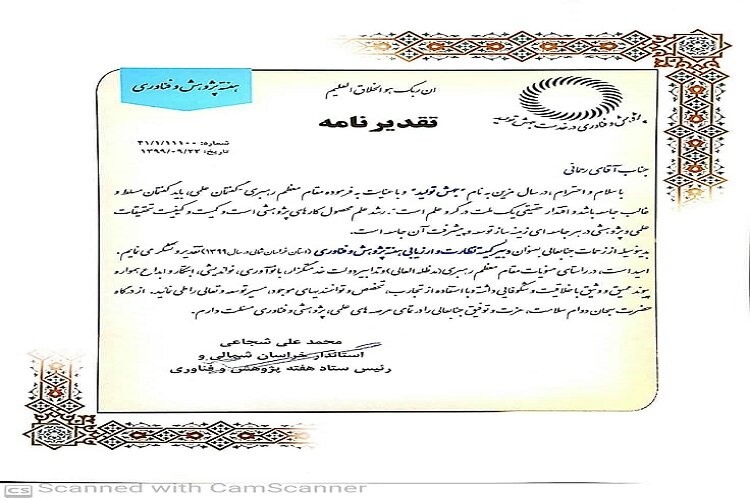 هفته پژوهش و فناوری
ان ربک هو الخلاق العلیم
تقدیرنامه
پژوهش و فناوری در خدمت جهش تولید
شماره: ۴۱/۱/۱۱۱۰۰
تاریخ: ۱۳۹۹/۰۹/۲۲
جناب آقای رحمانی
با سلام و احترام، در سال مزین به نام "جهش تولید" و با عنایت به فرموده مقام معظم رهبری: گفتمان علمی، باید گفتمان مسلط و
غالب جامعه باشد و اقتدار حقیقی یک ملت در گرو علم است. رشد علم محصول کارهای پژوهشی است و کمیت و کیفیت تحقیقات
علمی و پژوهشی در هر جامعه ای زمینه ساز توسعه و پیشرفت آن جامعه است.
بدینوسیله از زحمات جنابعالی بعنوان دبیر کمیته نظارت و ارزیابی هفته پژوهش و فناوری (استان خراسان شمالی در سال ۱۳۹۹) تقدیر و تشکر می نمایم.
امید است، در راستای منویات مقام معظم رهبری (مدظله العالی) و تدابیر دولت خدمتگزار، با نوآوری، نواندیشی، ابتکار و ابداع همواره
پیوند عمیق و وثیق با خلاقیت و شکوفایی داشته و با استفاده از تجارب، تخصص و توانمندیهای موجود، مسیر توسعه و تعالی را طی نمائید. از درگاه
حضرت سبحان دوام سلامت، عزت و توفیق جنابعالی را در تمامی عرصه های علمی، پژوهشی و فناوری مسئلت دارم.
محمد علی شجاعی
استاندار خراسان شمالی و
رئیس ستاد هفته پژوهش و فناوری
CS Scanned with CamScanner